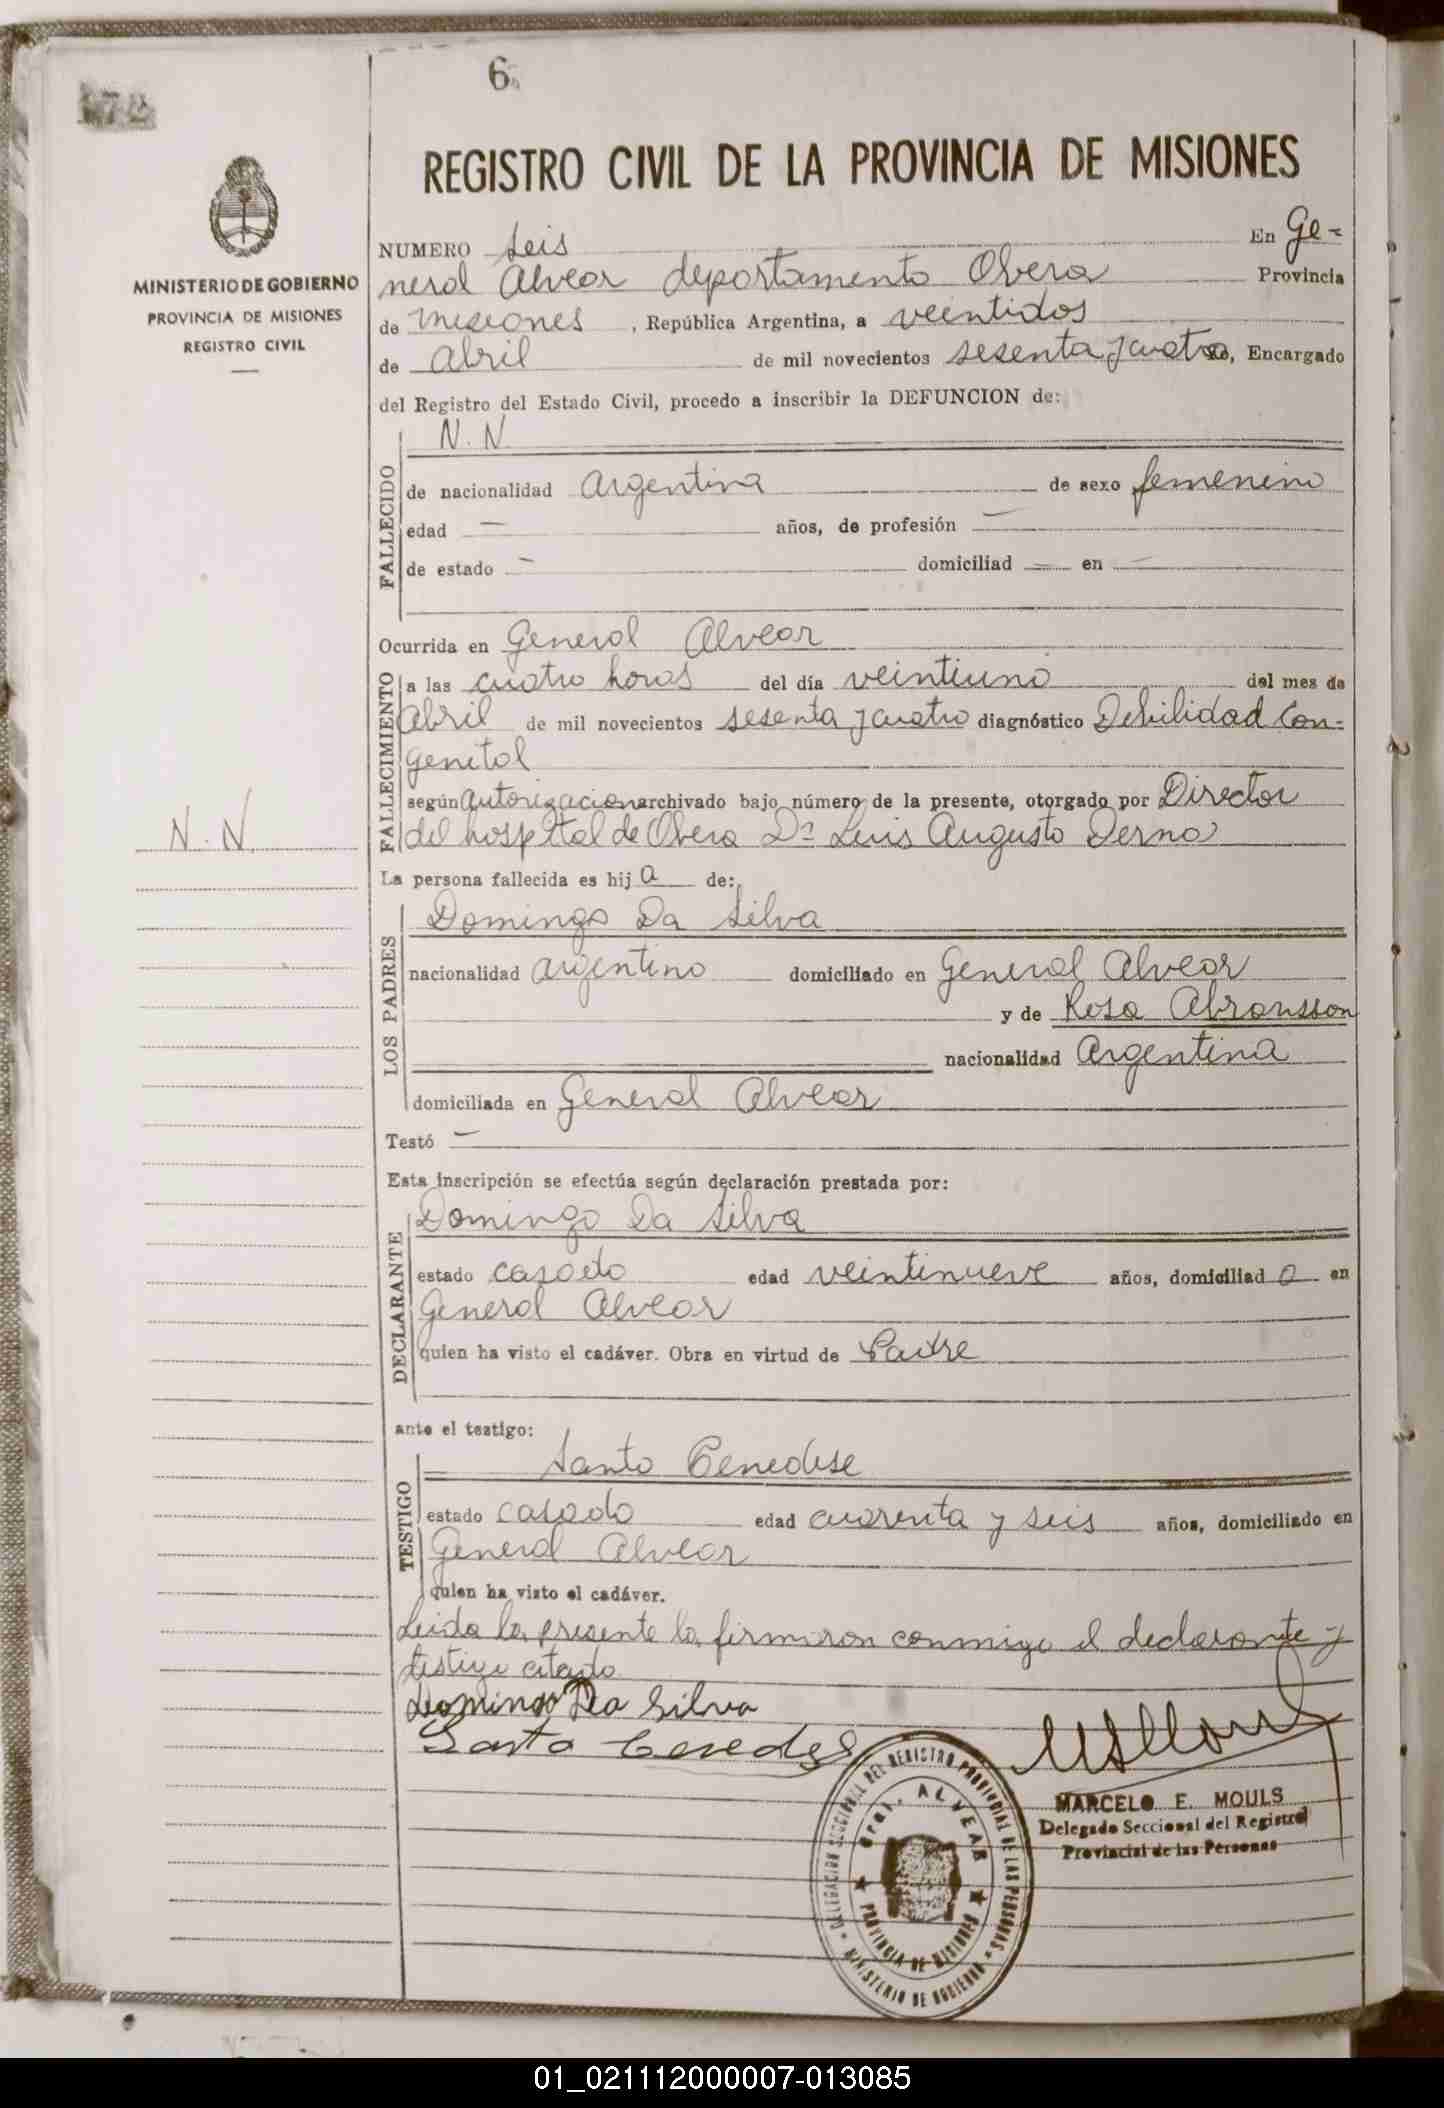 6
172
REGISTRO CIVIL DE LA PROVINCIA DE MISIONES
MINISTERIO DE GOBIERNO
PROVINCIA DE MISIONES
REGISTRO CIVIL
NUMERO Seis En Ge-
neral Alvear departamento Obera Provincia
de Misiones, República Argentina, a veintidos
de Abril de mil novecientos sesenta y cuatro, Encargado
del Registro del Estado Civil, procedo a inscribir la DEFUNCION de:
N. N
FALLECIDO
de nacionalidad Argentina de sexo femenino
edad — años, de profesión —
de estado — domiciliad — en —
Ocurrida en General Alvear
FALLECIMIENTO
a las cuatro horas del día veintiuno del mes de
Abril de mil novecientos sesenta y cuatro diagnóstico Debilidad Con-
genital
según Autorizacion archivado bajo número de la presente, otorgado por Director
del hospital de Obera Dr Luis Augusto Derna
N. N.
La persona fallecida es hij a de:
LOS PADRES
Domingo Da Silva
nacionalidad argentino domiciliado en General Alvear
y de Rosa Abransson
nacionalidad Argentina
domiciliada en General Alvear
Testó —
Esta inscripción se efectúa según declaración prestada por:
DECLARANTE
Domingo Da Silva
estado casado edad veintinueve años, domiciliad o en
General Alvear
quien ha visto el cadáver. Obra en virtud de Padre
ante el testigo:
TESTIGO
Santo
estado casado edad cuarenta y seis años, domiciliado en
General Alvear
quien ha visto el cadáver.
Leida la presente la firmaron conmigo el declarante y
testigo citado
Domingo Da Silva
Santo
MARCELO E. MOULS
Delegado Seccional del Registro
Provincial de las Personas
DELEGACION SECCIONAL DEL REGISTRO PROVINCIAL DE LAS PERSONAS
MINISTERIO DE GOBIERNO
Gral. ALVEAR
PROVINCIA DE MISIONES
01_021112000007-013085